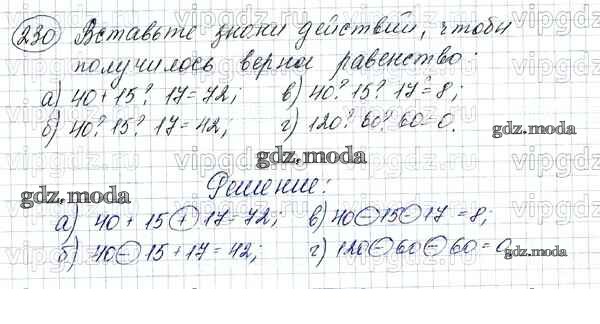 230 Вставьте знаки действий, чтобы
получилось верное равенство:
а) 40 + 15? 17 = 72; в) 40? 15? 17 = 8;
б) 40? 15? 17 = 42; г) 120? 60? 60 = 0.
gdz.moda
gdz.moda
Решение:
gdz.moda
а) 40 + 15 + 17 = 72; в) 40 - 15 - 17 = 8;
б) 40 - 15 + 17 = 42; г) 120 - 60 - 60 = 0
gdz.moda